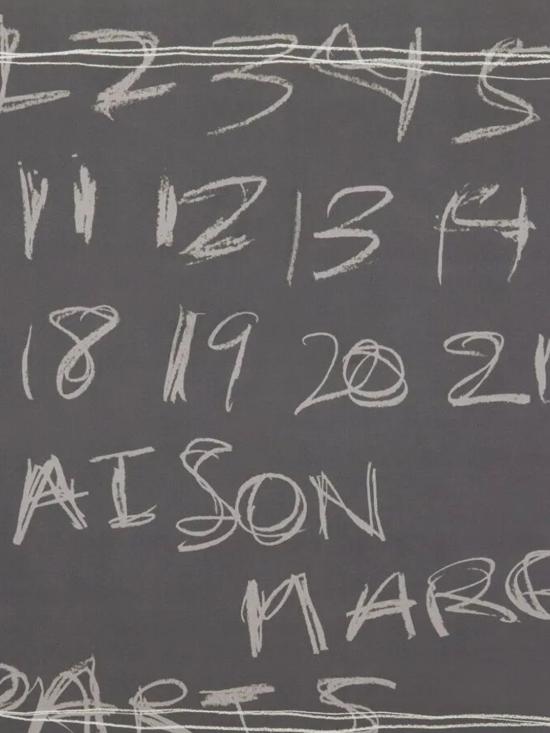 1 2 3 4 5
11 12 13 14
18 19 20 21
AISON
MARG
PARIS